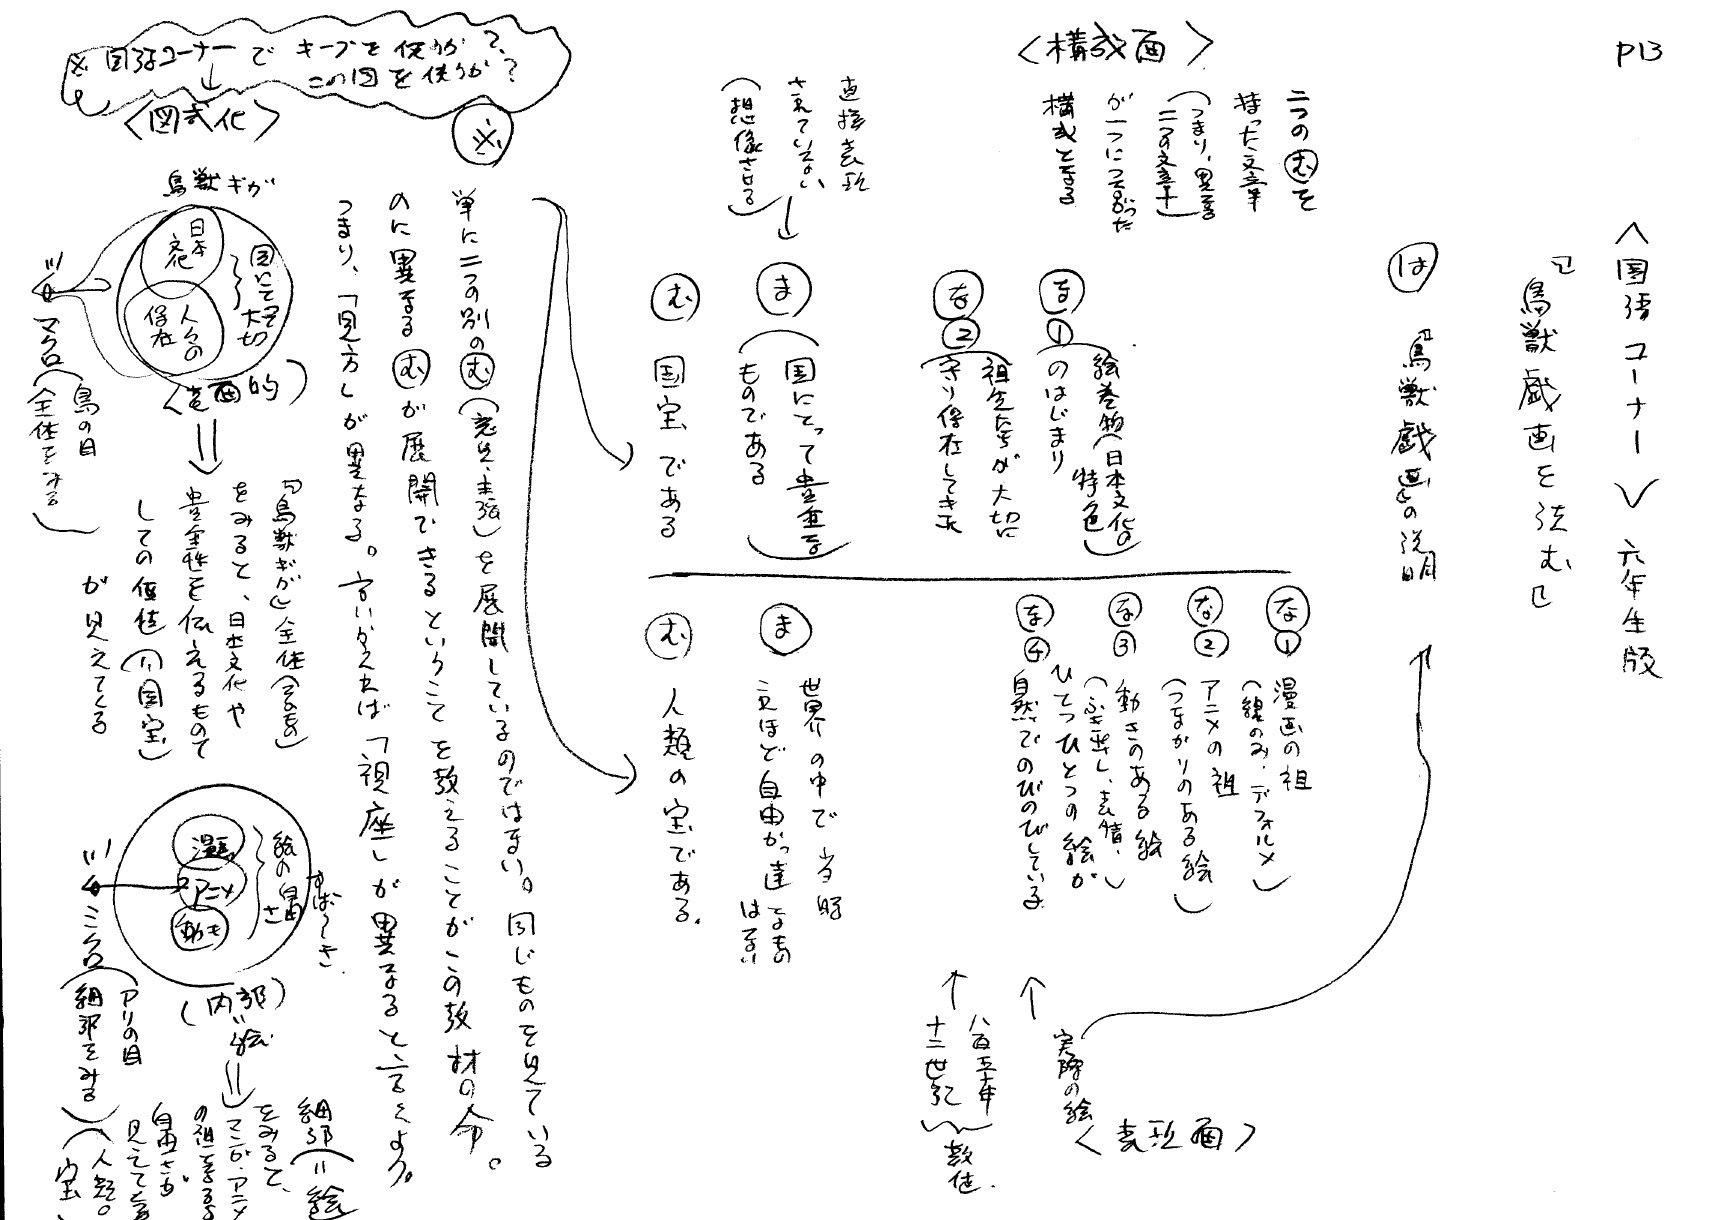 P13
〈国語コーナー〉六年生版
『鳥獣戯画を読む』
は 『鳥獣戯画』の説明
〈構成面〉
二つのむを
持った文章
(つまり、異なる
二つの文章)
が一つにつながった
構成となる
な① 絵巻物(日本文化の
特色)
のはじまり
な② 祖先たちが大切に
守り保存してきた
直接表現
されていない
(想像させる)
ま (国にとって貴重な
ものである)
む 国宝である
な① 漫画の祖
(線のみ・デフォルメ)
な② アニメの祖
(つながりのある絵)
な③ 動きのある絵
(ふき出し、表情、)
な④ ひとつひとつの絵が
自然でのびのびしている
ま 世界の中で当時
これほど自由かっ達なもの
はない
む 人類の宝である。
実際の絵
〈表現面〉
八百五十年
十二世紀
数値
※
単に二つの別のむ(意見・主張)を展開しているのではない。同じものを見ている
のに異なるむが展開できるということを教えることがこの教材の命。
つまり、「見方」が異なる。言いかえれば「視座」が異なると言えよう。
※国語コーナーでキープを使うか?
この図を使うか?
〈図式化〉
鳥獣ギガ
日本
文化
人々の
保存
国にとって
大切
マクロ(鳥の目
全体をみる)
(巻画的)
『鳥獣ギガ』全体(そのもの)
をみると、日本文化や
貴重性を伝えるものと
しての価値(=国宝)
が見えてくる
漫画
アニメ
動き
絵の自由
さ
すばらしさ
ミクロ(アリの目
細部をみる)
(内部)
=絵
細部(=絵
をみると、
マンガ・アニメ
の祖となる
自由さが
見えてくる
(人類の
宝)